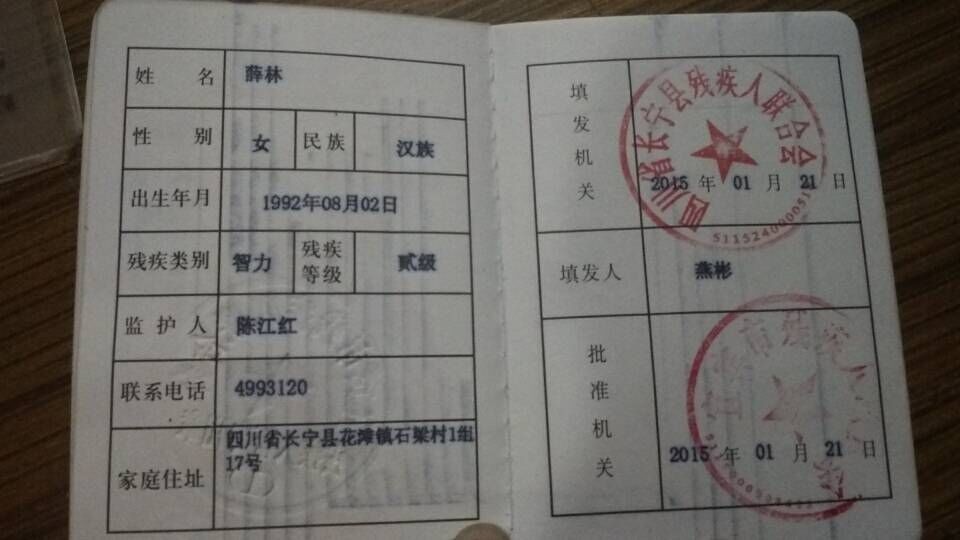 姓名 薛林
性别 女 民族 汉族
出生年月 1992年08月02日
残疾类别 智力 残疾等级 贰级
监护人 陈江红
联系电话 4993120
家庭住址 四川省长宁县花滩镇石梁村1组
17号
填发机关
四川省长宁县残疾人联合会
2015 年 01 月 21 日
填发人 燕彬
批准机关
市残疾人
2015 年 01 月 21 日